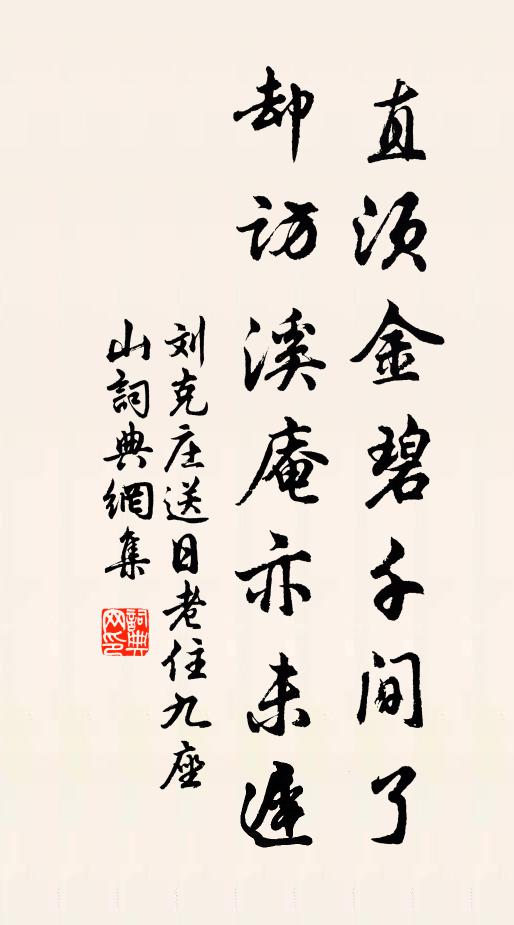 直须金碧千间了
却訪溪庵亦未遲
刘克庄送日老住九座
山詞典網集
詞典
网印